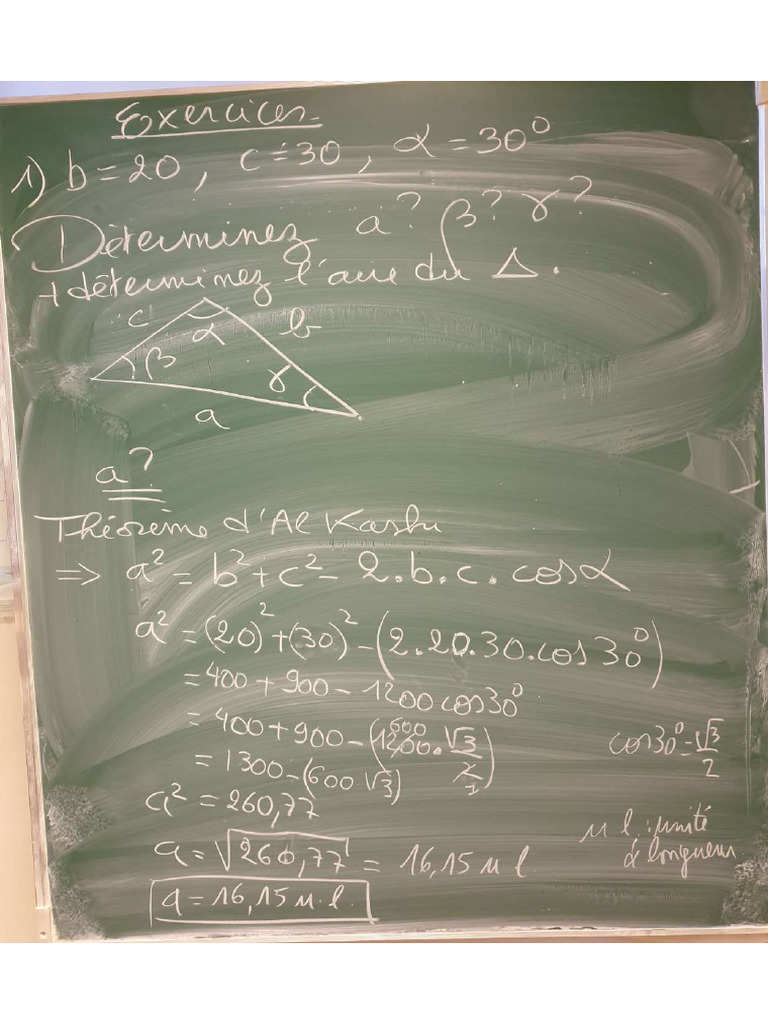 Exercices
1) b = 20, c = 30, α = 30°
Déterminez a? β? γ?
+ déterminez l'aire du Δ.
c
α
b
β
γ
a
a?
Théorème d'Al Kashi
⇒ a² = b² + c² - 2.b.c.cosα
a² = (20)² + (30)² - (2.20.30.cos 30°)
= 400 + 900 - 1200 cos30°
= 400 + 900 - (1200.√3/2) 600 1
cos30° = √3/2
= 1300 - (600√3)
a² = 260,77
a = √260,77 = 16,15 u l
u l : unité
de longueur
a = 16,15 u.l.